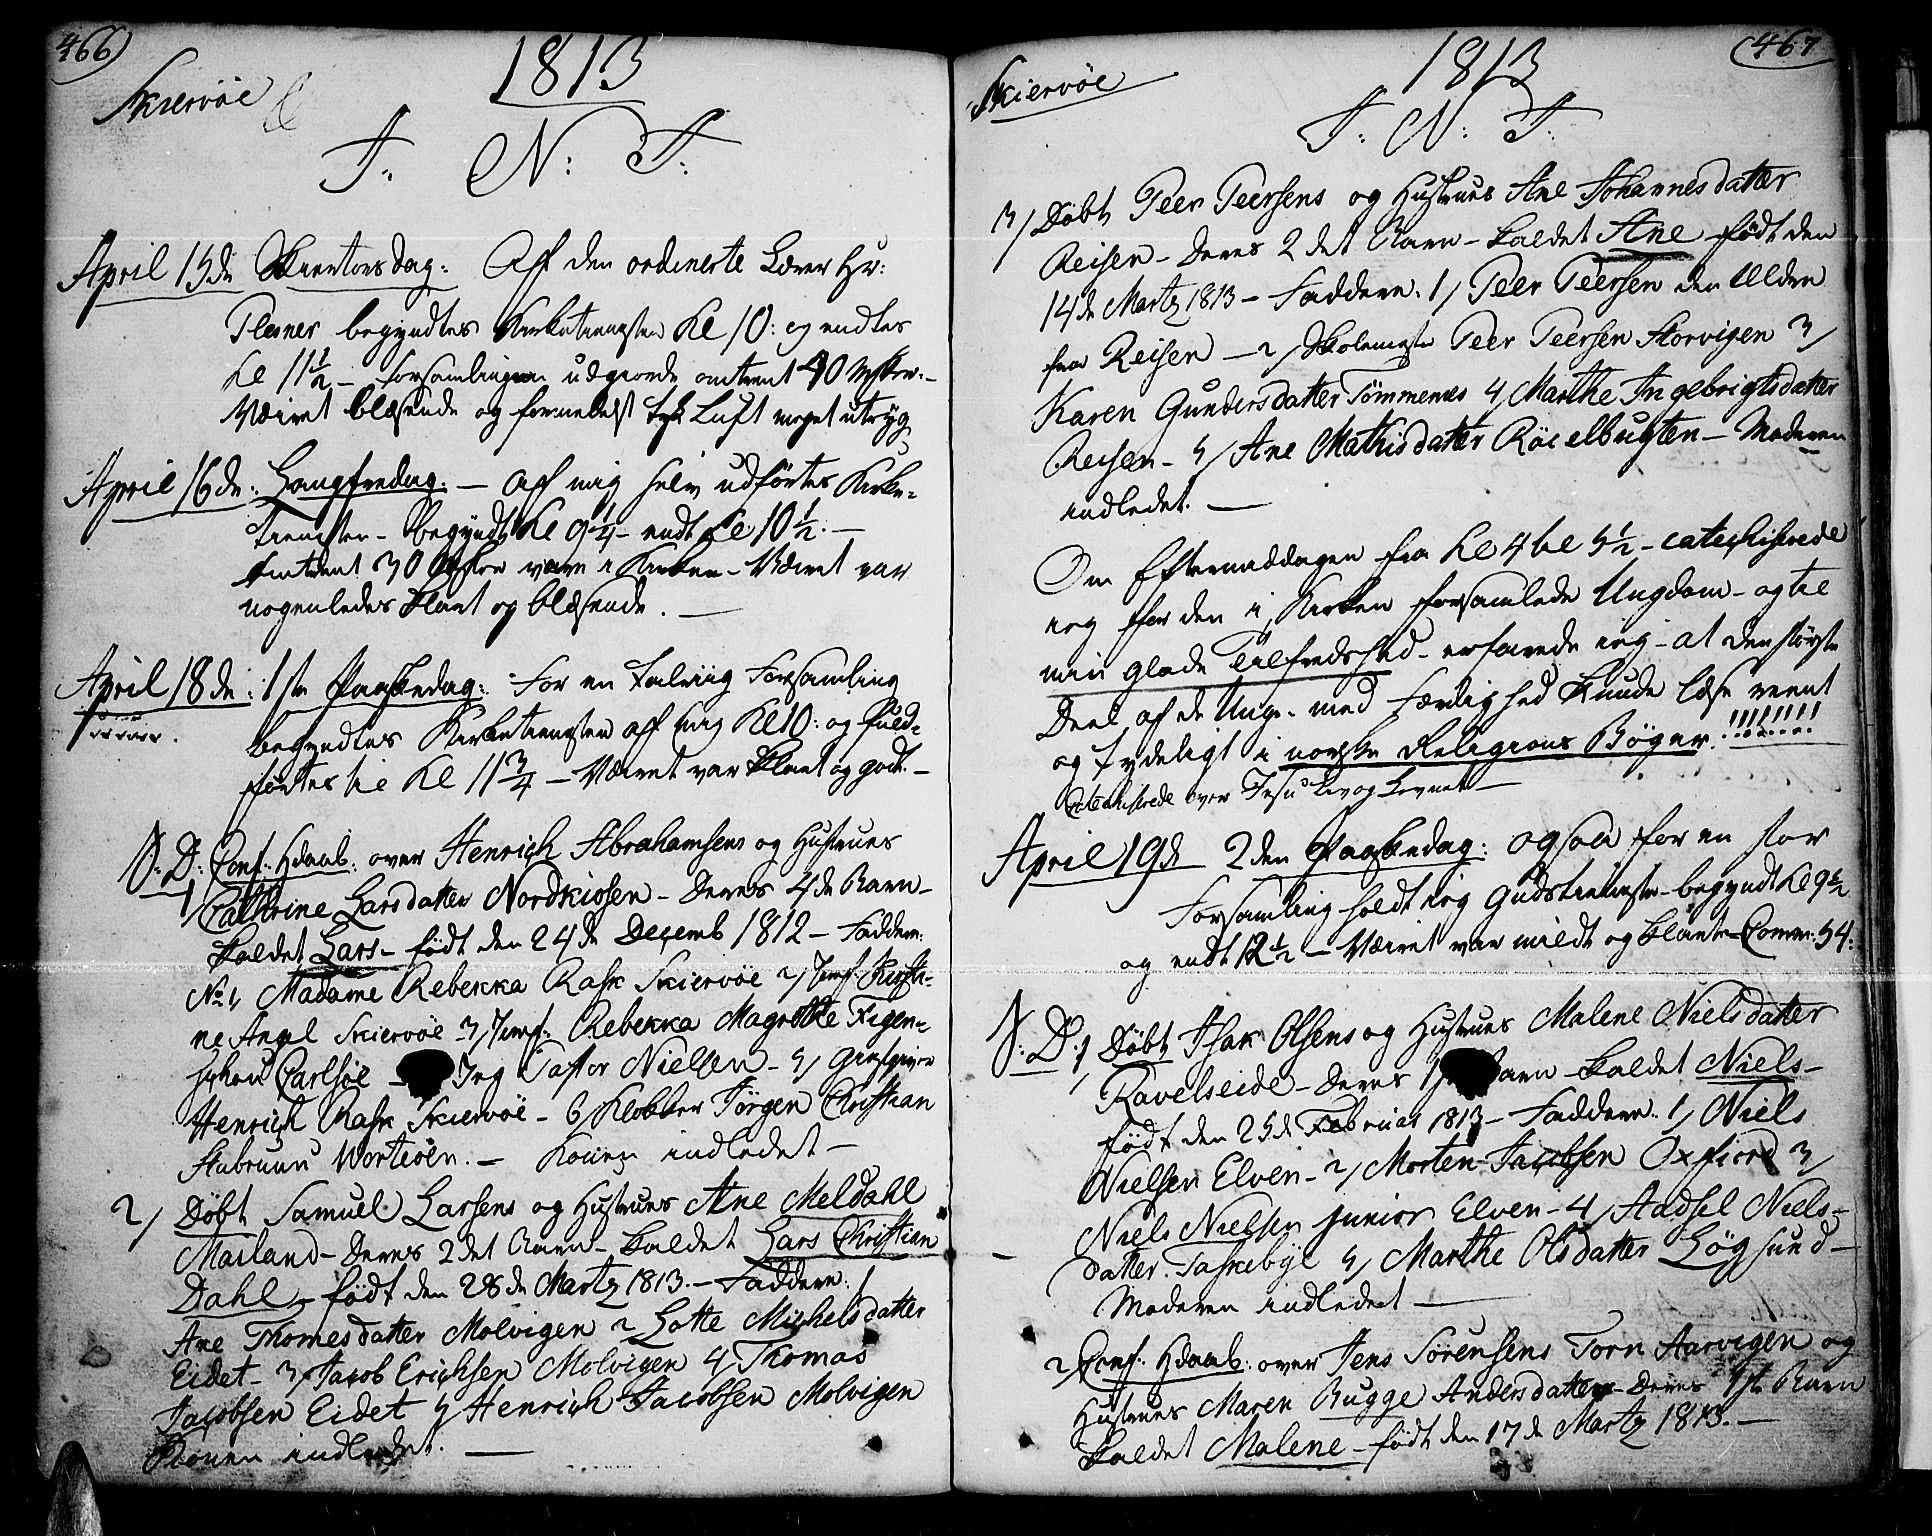 466)
1813
Skiervöe
J: N: J:
April 15de Skiertorsdag: Aff den ordinerte Lærer Hr:
Plesner begyndtes Kirketienesten Kl 10: og endtes
Kl 11 1/2 – Forsamlingen udgiorde omtrent 40 Msker. –
Væiret blæsende og formedelst tyk Luft meget utryg
April 16de: Langfredag. – Aff mig selv udførtes Kirke-
tienesten – Begyndt Kl 9 1/4 – endt Kl 10 1/2. –
Omtrent 30 Msker vare i Kirken – Væiret var
nogenledes klart og blæsende. –
April 18de: 1ste Paaskedag: For en talriig Forsamling
begyndtes Kirketienesten aff mig Kl 10: og fuld-
førtes til Kl 11 3/4 – Væiret var klart og godt. –
N: D: Conf: Hdaab: over Henrich Abrahamsens og Hustrues
1/ Cathrine Larsdatter Nordkiosen – Deres 4de Barn –
kaldet Lars – født den 24de Decemb 1812 – Faddere:
No 1, Madame Rebekka Rask Skiervöe 2/ Jomf: Kirsti-
ne Angel Skiervöe 3/ Jomf: Rebekka Magrethe Figen-
schou Carlsöe – Jeg Pastor Nielsen – 5/ Giestgiver
Henrich Rask Skiervöe – 6/ Klokker Jörgen Christian
Stabruun Worteöen. – Konen indledet –
2/ Døbt Samuel Larsens og Hustrues Ane Meldahl
Mailand – Deres 2det Barn – kaldet Lars Christian
Dahl – født den 28de Martz 1813. – Faddere: 1
Ane Thomesdatter Molvigen 2 Lotte Michelsdatter
Eidet – 3/ Jacob Erichsen Molvigen 4/ Thomas
Jacobsen Eidet 5 Henrich Jacobsen Molvigen
Konen indledet. –
(467
1813
Skiervöe
J: N: J:
3/ Døbt Peer Peersens og Hustrues Ane Johannesdatter
Reisen – Deres 2det Barn – kaldet Ane – født den
14de Martz 1813 – Faddere. 1/ Peer Peersen den Ældre
fra Reisen – 2/ Skolemester Peer Peersen Storvigen 3/
Karen Gundersdatter Tömmernes 4/ Marthe Ingebrigtsdatter
Reisen – 5/ Ane Mathisdatter Röielbugten – Moderen
indledet. –
Om Eftermiddagen fra Kl 4 til 5 1/2 – catechiserede
ieg for den i Kirken forsamlede Ungdom – og til
min glade Tilfredshed – erfarede ieg – at den største
Deel af de Unge – med Færdighed kunde læse reent
og tydeligt i norske Religions Bøger. !!!!!!!!
Catechiserede over Jesu Liv og Levnet –
April 19de 2den Paaskedag: ogsaa for en stor
Forsamling holdt ieg Gudstieneste – begyndt Kl 9 1/2
og endt 12 1/2 – Væiret var mildt og klart – Comm: 54:
N: D: 1/ Døbt Isak Olsens og Hustrues Malene Nielsdatter
Ravelseide – Deres 1ste Barn – kaldet Niels –
født den 25de Februar 1813 – Faddere. 1/ Niels
Nielsen Elven – 2/ Morten Jacobsen Oxfiord 3/
Niels Nielsen junior Elven – 4/ Aadsel Niels-
datter. Taskebye 5/ Marthe Olsdatter Løgsund –
Moderen indledet –
2/ Conf: Hdaab: over Jens Sörensens Torn Aarvigen og
Hustrues Maren Bugge Andersdatter – Deres 1ste Barn
kaldet Malene – født den 17de Martz 1813. –